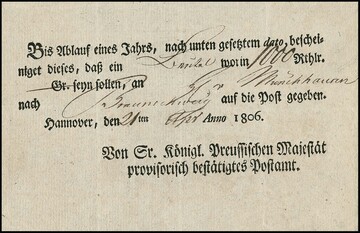 Bis Ablauf eines Jahrs, nach unten gesetztem dato, beschei-
niget dieses, daß ein Beutel worin 1000 Rthlr.
Gr. seyn sollen, an Hr Münchhausen
nach Braunschweig auf die Post gegeben.
Hannover, den 21ten Apr Anno 1806.
Von Sr. Königl. Preussischen Majestät
provisorisch bestätigtes Postamt.